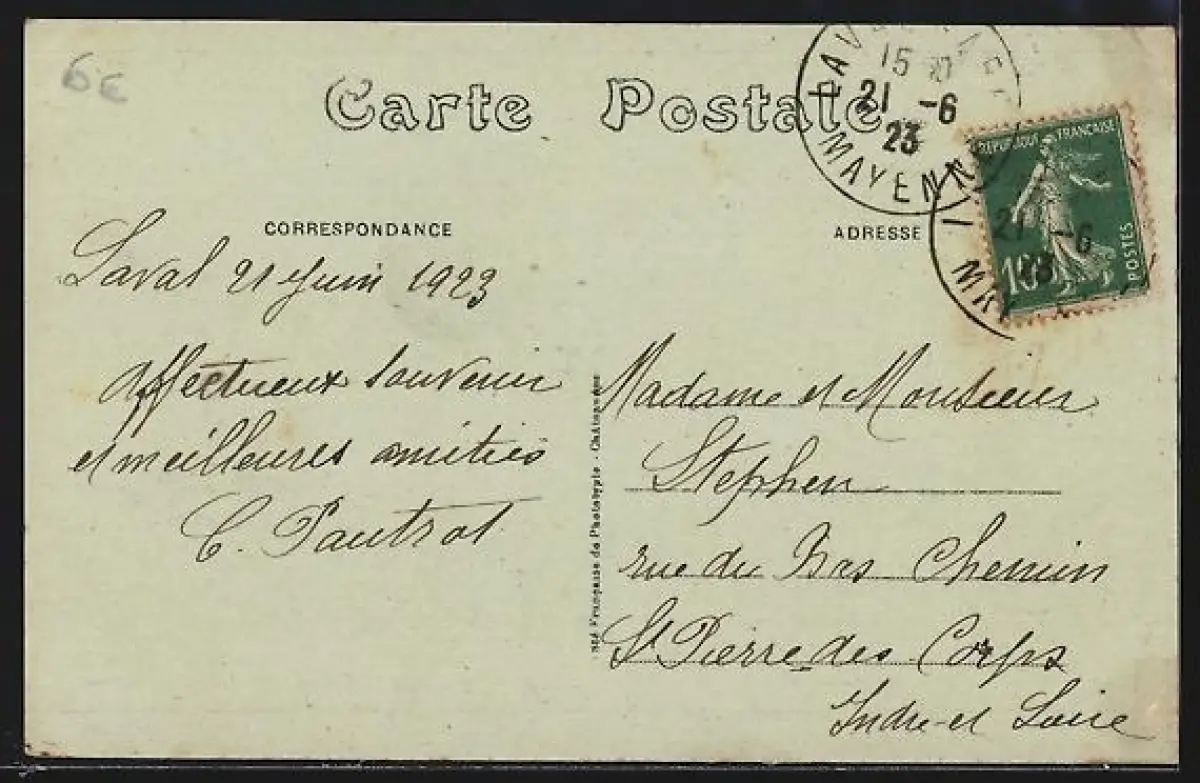 6€
Carte Postale
LAVAL
15
21 -6
23
MAYENNE
REPUBLIQUE FRANÇAISE
POSTES
10
21 -6
23
CORRESPONDANCE
ADRESSE
Laval 21 Juin 1923
Affectueux souvenir
et meilleures amitiés
C. Pautrat
Française de Phototypie - Châteauneuf
Madame et Monsieur
Stephen
rue du Bas Chemin
St Pierre des Corps
Indre et Loire